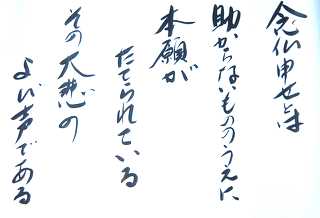 念仏申せとは
助からないもののうえに
本願が
たてられている
その大悲の
よび声である